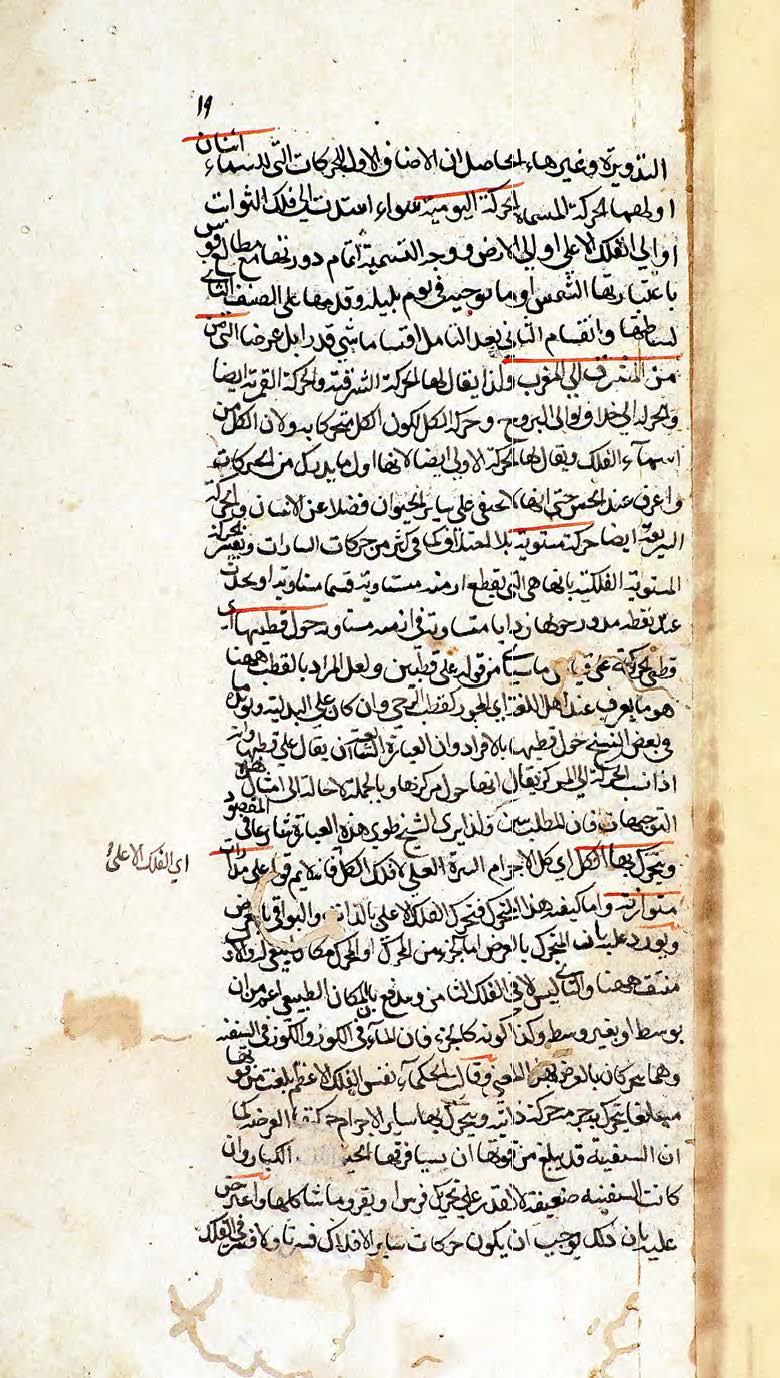 ١٩
التدويرة وغيرها الحاصل ان الاصناف الاول للحركات التي للسماء اثنان
اولهما الحركة المسماة بالحركة اليومية سواء استندت الى فلك الثوابت
او الى الفلك الاعلى او الى الارض ووجه التسمية اتمام دورتها مع
باعتبارها الشمس او ما يوجبه في يوم بليلة وقدمها على الصنف الثاني
لبساطتها وانقسام الثاني بعد التامل اقساما شتى
من المشرق الى المغرب ولذا يقال لها الحركة الشرقية والحركة الغربية ايضا
والحركة الى خلاف توالى البروج وحركة الكل لكون الكل متحركا به ولان الكل من
اسماء الفلك ويقال لها الحركة الاولى ايضا لانها اول ما يدرك من الحركات
واعرف عند الحس حتى انها لا تخفى على ساير الحيوان فضلا عن الانسان والحركة
السريعة ايضا حركة مستوية بلا اختلاف كما في كثير من حركات السيارات ويفسر الحركة
المستوية الفلكية بانها هي التي يقطع ازمنة متساوية قسيا متساوية او يحدث
عند نقطة مدور حولها زوايا متساوية في ازمنة متساوية حول قطبيها اي
قطبي الحركة على قياس ما سيأتي من قوله على قطبين ولعل المراد بالقطب ههنا
هو ما يعرف عند اهل اللغة اي المحور كقطب الرحى وان كان على البدلية
في بعض النسخ حول قطبها بالافراد وان العبارة الشايعة ان يقال على قطبيها
اذا نسب الحركة الى المركز يقال انها حول مركزها وبالجملة لا حاجة الى امثال هذه
التوجيهات فان المطلب بين ولذا يرى الشيخ طوى هذه العبارة المقصود
ويتحرك بها الكل اي كل الاجرام النيرة العلى لا فلك الكل فانه لا يم قوله على مدارات
اي الفلك الاعلى
متوازية واما كيفية هذا التحرك فتحرك الفلك الاعلى بالذات والبواقي بالعرض
ويورد عليه بان المتحرك بالعرض اما كجزء من المحرك او المحرك مكان طبيعي له والاول
منتف ههنا والثاني ليس الا في الفلك الثامن ويدفع بان المكان الطبيعي اعم من ان
بوسط او بغير وسط وكذا كونه كالجزء فان الماء في الكوز والكوز في السفينة
وهما يتحركان بالعرض وقالت الحكماء نفس الفلك الاعظم بلغت من قوتها
مبلغا يتحرك حركة ذاتية ويتحرك بها ساير الاجرام حركتها العرضية كما
ان السفينة قد يبلغ من قوتها ان الكبار وان
كانت السفينة ضعيفة لا تقدر على تحريك فرس او بقر وما شاكلها واعترض
عليه بان ذلك يوجب ان يكون حركات ساير الافلاك قسرية ولا قسر في الفلك